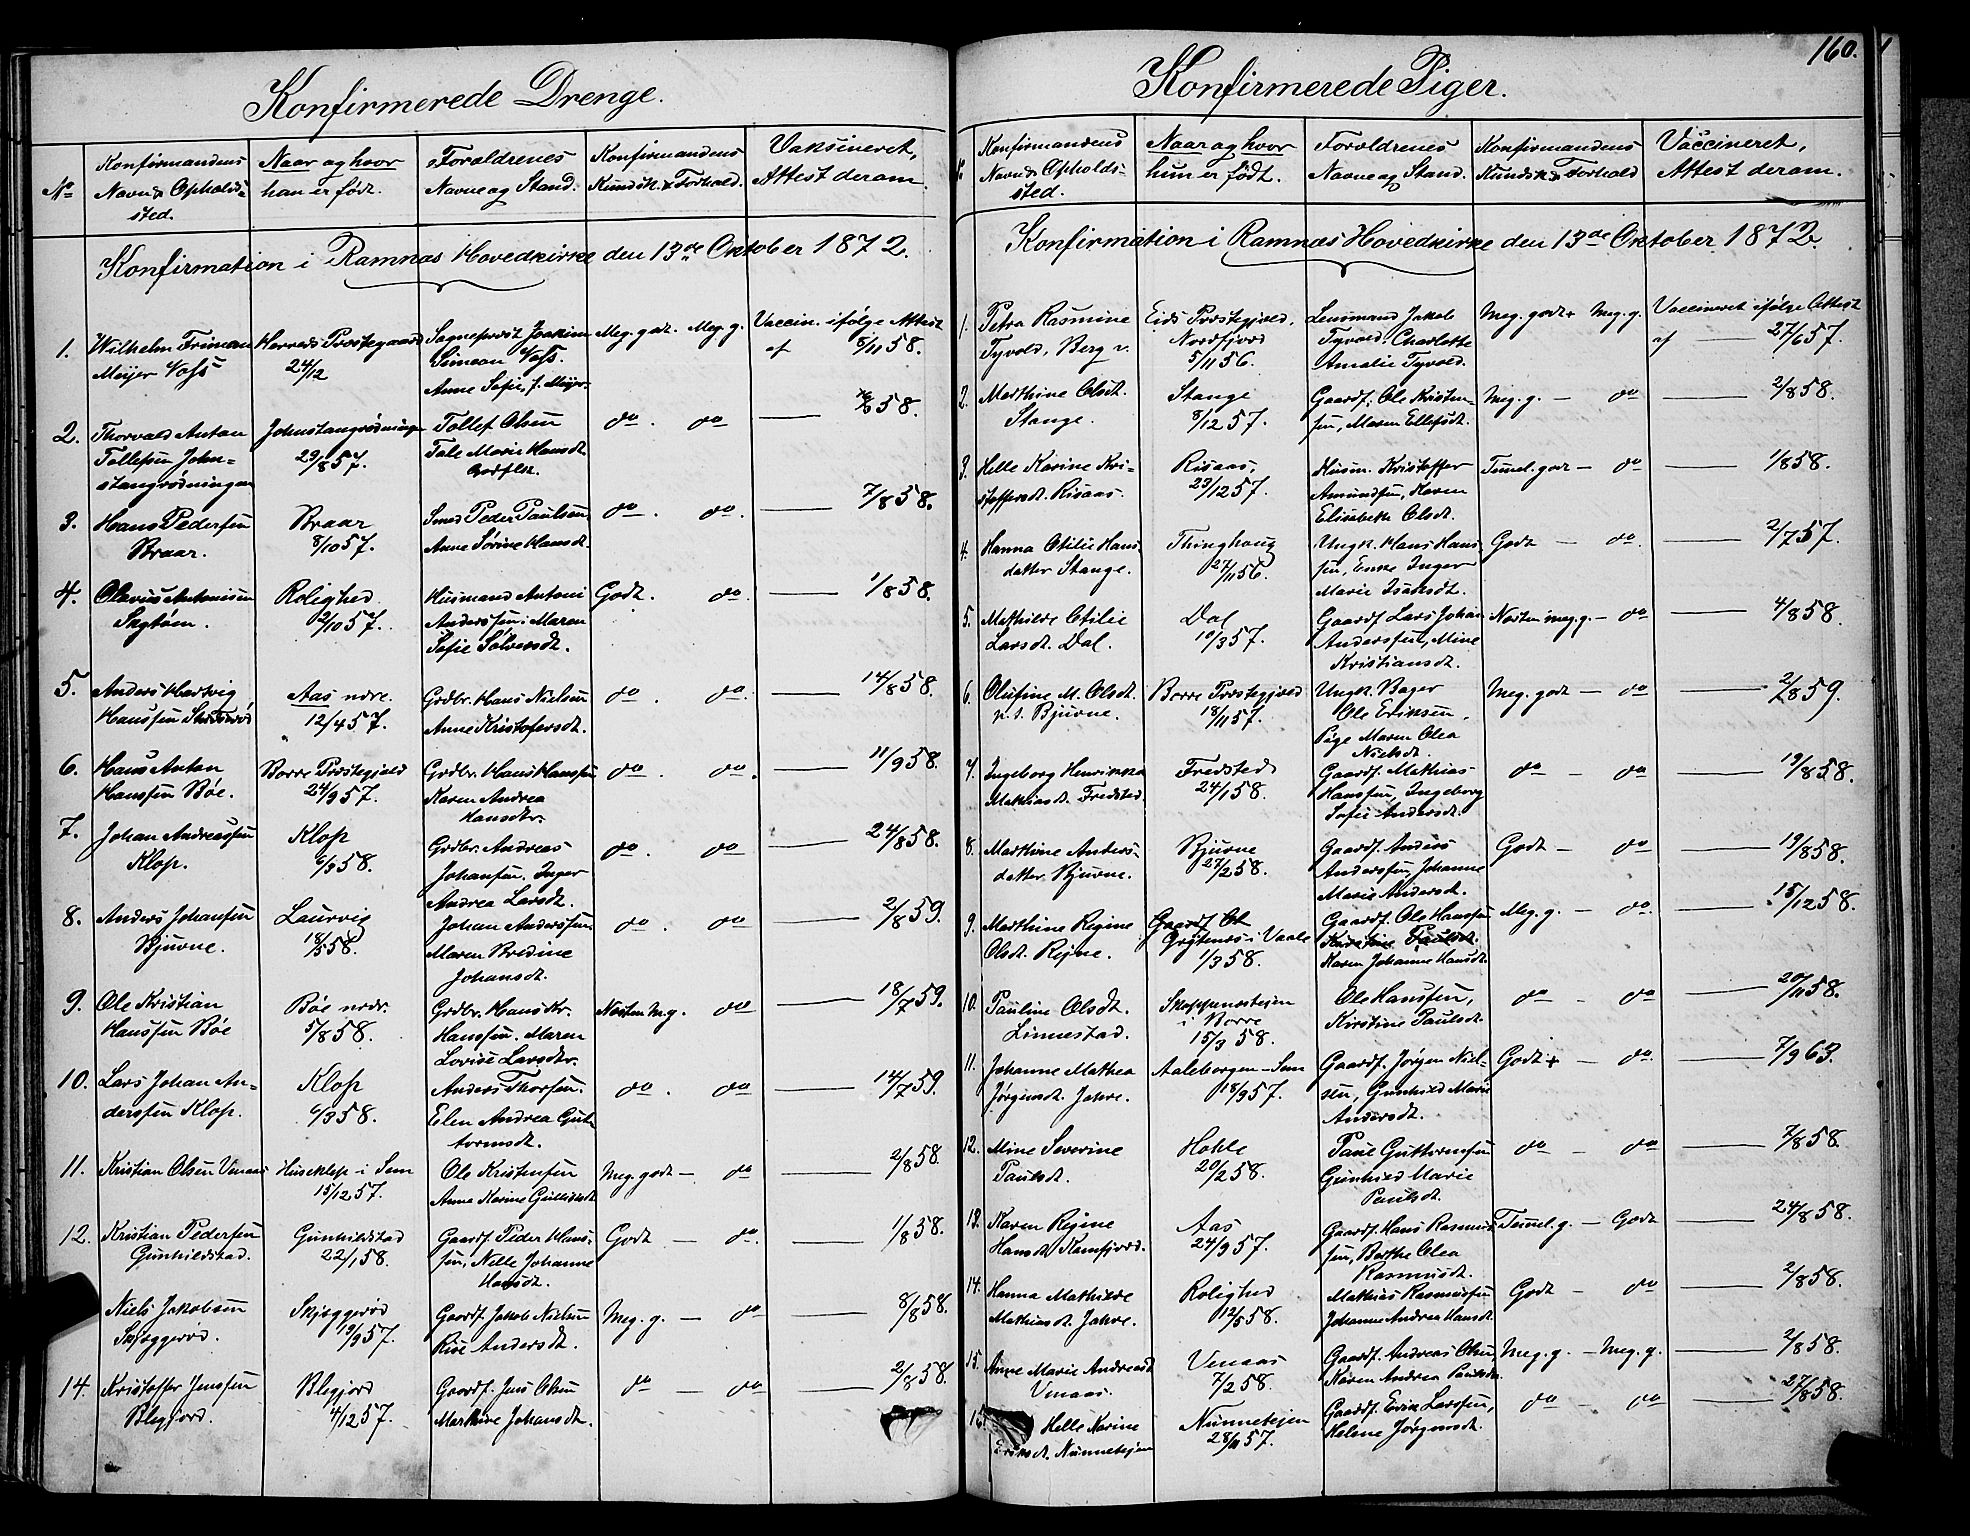 160.
Konfirmerede Drenge.
No
Konfirmandens Navn & Opholds-sted.
Naar og hvor han er født.
Forældrenes Navne og Stand.
Konfirmandens Kundsk. & Forhold.
Vaksineret, Attest derom.
Konfirmation i Ramnæs Hovedkirke den 13de Oktober 1872.
1. Wilhelm Friman Herreds Præstegaard Sognepræst Joakim Meg. godt. Meg. g. Vaccin. ifølge Attest
Meijer Voss 24/12 Simeon Voss. af 5/11 58.
Anne Sofie, f. Meijer.
2. Thorvald Anton Johnstangrødningen Tollef Olsen do. do 58.
Tollefsen John- 29/8 57. Tale Marie Hansdt.
stangrødningen
3. Hans Pedersen Braar Smed Peder Paulsen do. do. 7/8 58.
Braar. 8/10 57. Anne Sørine Hansdt.
4. Olavus Antonisen Rolighed Husmand Antoni Godt. do. 1/8 58.
2/10 57. Anderssen, Maren
Sofie Sølvesdt.
5. Anders Hartvig Aas ndre. Grdbr. Hans Nielsen do. do 14/8 58.
Hanssen 12/4 57. Anne Kristofersdt.
6. Hans Anton Borre Præstegjeld Grdbr. Hans Hanssen do. do. 11/9 58.
Hanssen Bøe. 24/9 57. Karen Andrea
Hansdtr.
7. Johan Andreassen Klop Grdbr. Andreas do. do 24/8 58.
Klop. 6/3 58. Johansen, Inger
Andrea Larsdt.
8. Anders Johansen Laurvig Johan Anderssen do. do 2/8 59.
Bjuvne. 18/3 58. Maren Bredine
Johansdt.
9. Ole Kristian Bøe nedr. Grdbr. Hans Kr. Næsten Mg. do 18/7 59.
Hanssen Bøe 5/8 58. Hanssen. Maren
Lovise Larsdtr.
10. Lars Johan An- Klop Anders Thorsen. do. do 14/7 59.
derssen Klop. 6/3 58. Elen Andrea Gut-
tormsdt.
11. Kristian Olsen Vinaas Huseklep i Sem Ole Kristensen Meg. godt - do 2/8 58.
15/12 57. Anne Karine Gulliksdt
12. Kristian Pedersen Gunhildstad Gaardf. Peder Hans- Godt - do. 1/8 58.
Gunhildstad. 22/1 58. sen, Nelle Johanne
Hansdt.
Niels Jakobsen Skjæggerød Gaardf. Jakob Nielsen Meg. g. - do 8/8 58.
Skjæggerød. 19/9 57. Andersdt.
14. Kristoffer Jenssen Blegjord Gaardf. Jens Olsen do - do 2/8 58.
Blegjord. 4/12 57. Marthine Johansdt.
Konfirmerede Piger.
Konfirmandens Navn & Opholds-sted.
Naar og hvor hun er født.
Forældrenes Navne og Stand.
Konfirmandens Kundsk. & Forhold
Vaccineret, Attest derom.
Konfirmation i Ramnæs Hovedkirke den 13de Oktober 1872
1. Petra Rasmine Eids Præstegjeld, Lensmand Jakob Meg. godt + Meg. g. Vaccineret ifølge Attest
Tyvold, Berg v. Nordfjord Tyvold, Charlotte af 27/6 57.
5/11 56. Amalie Tyvold.
2. Marthine Olsdt. Stange Gaardf. Ole Kristen- Meg. g. - do 2/8 58.
Stange. 8/12 57. sen, Maren Ellefsdt.
3. Helle Karine Kri- Risaas, Husm. Kristoffer Temel. godt - do 1/8 58.
stoffersdt. Risaas. 23/12 57. Amundsen, Maren
Elisebeth Olsdt.
4. Hanna Otilie Hans Thinghaug Ungk. Hans Hans Godt - do. 2/7 57.
datter Stange. 27/11 56. sen, Enke Inger
Marie Isaksdt.
5. Mathilde Otilie Dal Gaardf. Lars Johan Næsten meg. g. - do 4/8 58.
Larsdt. Dal. 10/3 57. Anderssen, Mine
Kristiansdt.
6. Olufine M. Olsdt. Borre Præstegjeld Ungk. Bager Meg. godt - do 2/8 59.
Bjuvne. 18/11 57. Ole Eriksen,
Pige Maren Olea
Nielsdt.
7. Ingeborg Henrikka Fredsted Gaardf. Mathias do - do 19/8 58.
Mathiasdt. Fredsted. 24/1 58. Hanssen, Ingeborg
Sofie Andersdt.
8. Marthine Anders- Bjuvne Gaardf. Anders Godt - do 19/8 58.
datter Bjuvne. 27/2 58. Anderssen, Johanne
Marie Andersdt.
9. Marthine Regine Gaardf. Ol Gaardf. Ole Hanssen Meg. g. - do. 15/12 58.
Olsdt. Rejne. i Vaale Kirstine Paulsdt.
1/3 58. Karen Johanne Hansdt.
10. Pauline Olsdt. Skoppumstejen Ole Hanssen, do - do 20/11 58.
Linnestad. i Borre Kirstine Paulsdt.
15/3 58.
11. Johanne Mathea Aaleborgen - Sem Gaardf. Jørgen Niel- Godt + - do. 7/9 63.
Jørgensdt. Jahre. 18/9 57. sen, Gunhild Marie
Andersdt.
12. Mine Severine Hotle Paul Guttormsen do - do 7/8 58.
Paulsdt. 20/2 58. Gunhild Marie
Paulsdt.
13. Karen Regine Aas Gaardf. Hans Rasmus Temmel. g. - Godt 24/8 58.
Hansdt. Kamfjord. 24/9 57. sen, Berthe Olea
Rasmusdt.
14. Hanna Mathilde Rolighed Mathias Rasmussen Godt - do 2/8 58.
Mathiasdt. Jahre. 12/5 58. Johanne Andrea Hansdt.
15. Anne Marie Andreasdt Vinaas Gaardf. Andreas Olsen Meg. g. - Meg. g. 2/8 58.
Vinaas. 7/2 58. Karen Andrea Paulsdt.
16. Helle Karine Nunnetejen Gaardf. Erik Larssen, do - do 27/8 58.
Eriksdt. Nunnetejen 28/11 57. Helene Jørgensdt.